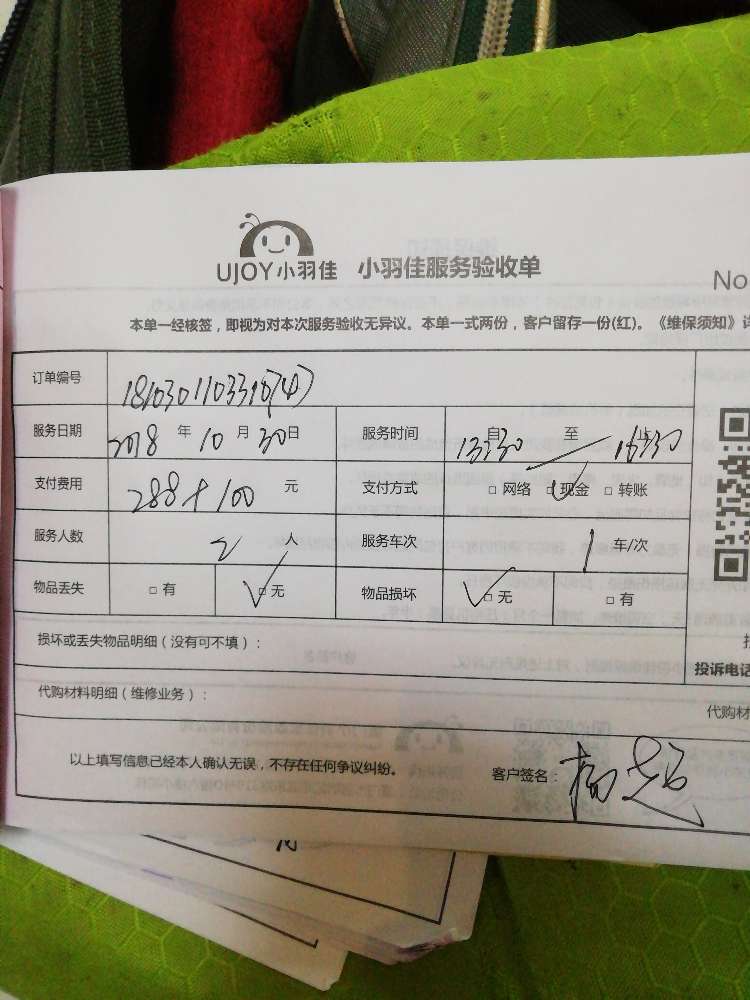 UJOY小羽佳 小羽佳服务验收单
No
本单一经核签，即视为对本次服务验收无异议。本单一式两份，客户留存一份(红)。《维保须知》详
订单编号
服务日期 2018 年 10 月 30 日 服务时间 自 13:30 至 16:30 止
支付费用 288+100 元 支付方式 □ 网络 □ 现金 □ 转账
服务人数 2 人 服务车次 1 车/次
物品丢失 □ 有 □ 无 物品损坏 □ 无 □ 有
损坏或丢失物品明细（没有可不填）：
投诉电话
代购材料明细（维修业务）：
代购材
以上填写信息已经本人确认无误，不存在任何争议纠纷。 客户签名：